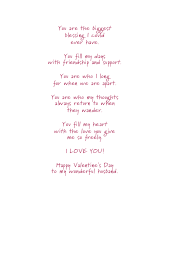 You are the biggest
blessing I could
ever have.
You fill my days
with friendship and support.
You are who I long
for when we are apart.
You are who my thoughts
always return to when
they wander.
You fill my heart
with the love you give
me so freely.
I LOVE YOU!
Happy Valentine's Day
to my wonderful husband.